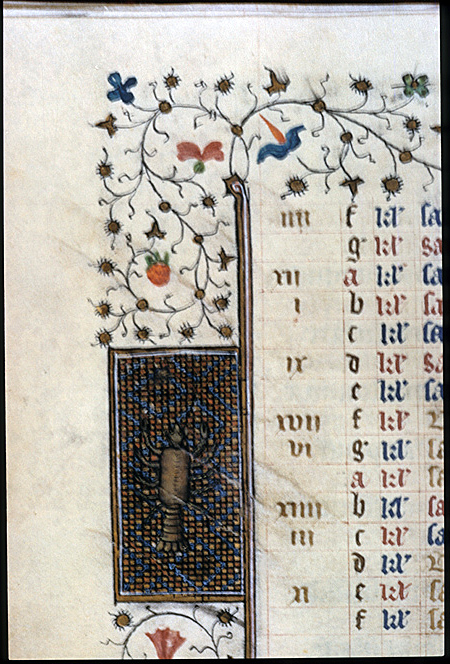 iiii f kl' sa
g kl' sa
xii a kl' sa
i b kl' sa
c kl' sa
ix d kl' sa
e kl' sa
xvii f kl'
vi g kl' sa
a kl' sa
xiiii b kl' sa
iii c kl' sa
d kl'
xi e kl' sa
f kl' sa